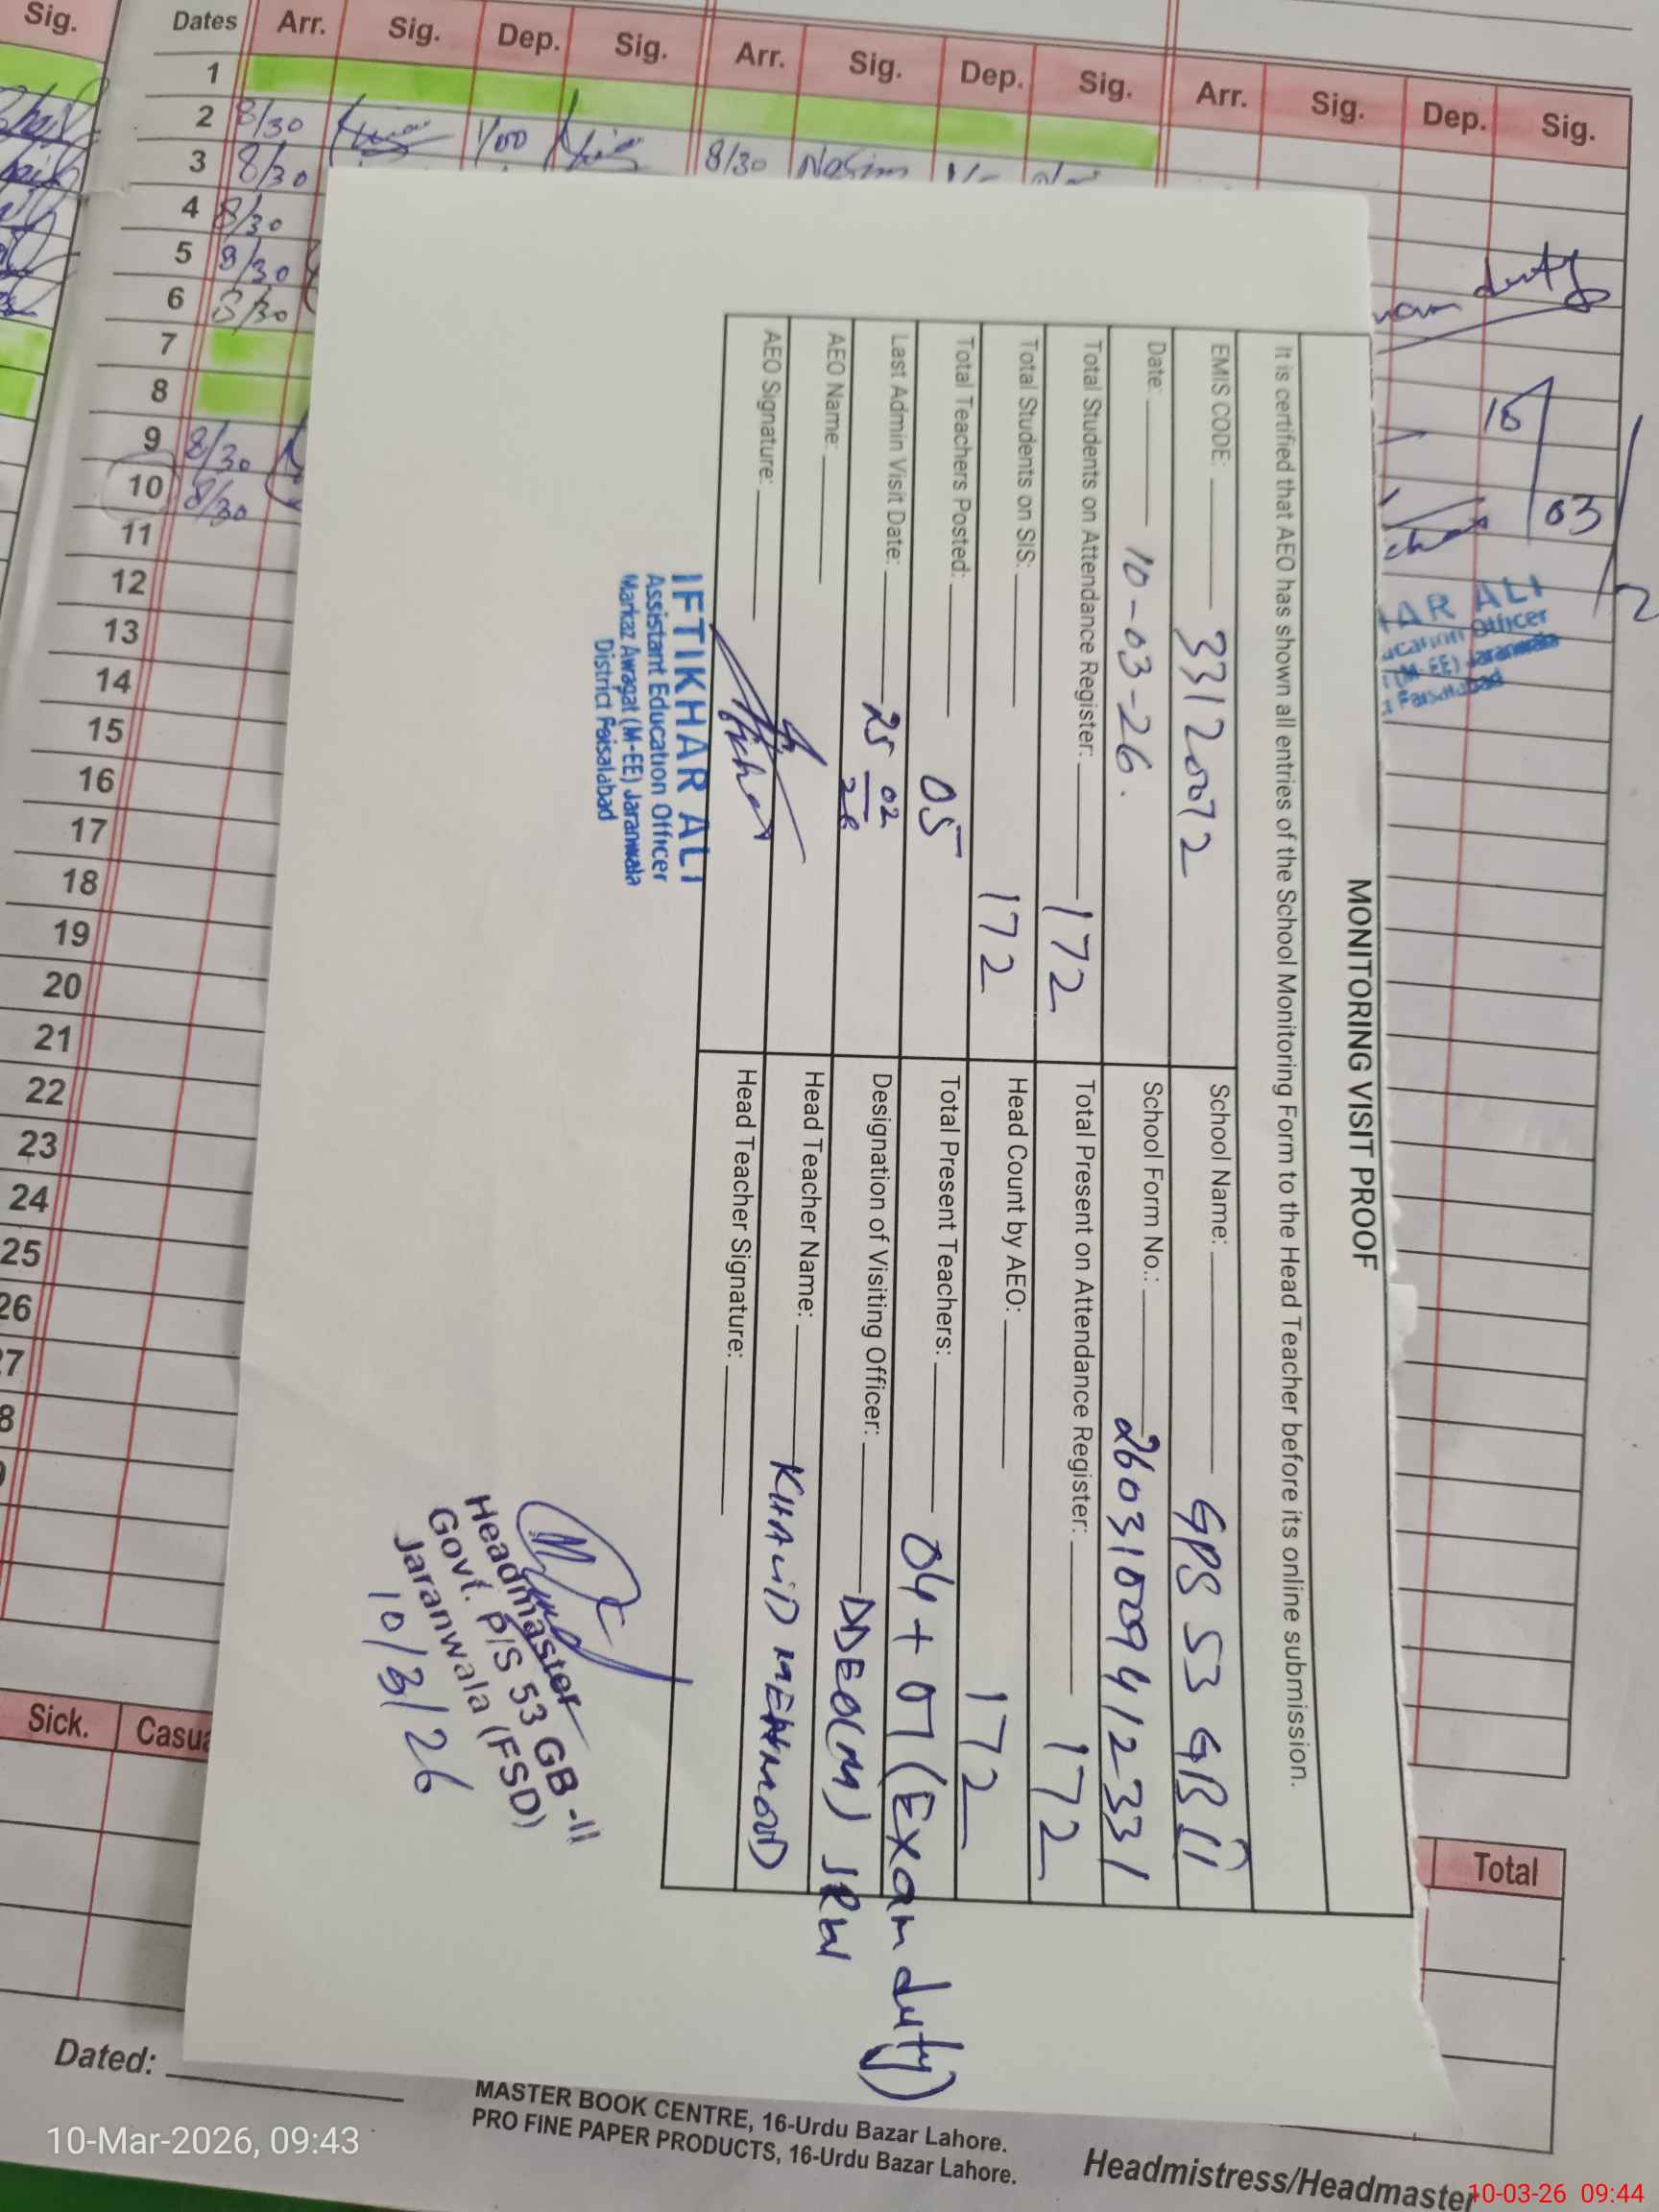 Sig.
Dates Arr. Sig. Dep. Sig. Arr. Sig. Dep. Sig. Arr. Sig. Dep. Sig.
1
2 8/30 1/00 8/30 Nasim
3 8/30
4 8/30
5 8/30
6 8/30
7
8
9 8/30
10 8/30
11
12
13
14
15
16
17
18
19
20
21
22
23
24
25
26
27
8
duty
10/03/2
AR ALI
ucation Officer
(M-EE) Jaranwala
Faisalabad
MONITORING VISIT PROOF
It is certified that AEO has shown all entries of the School Monitoring Form to the Head Teacher before its online submission.
EMIS CODE: 33120072 School Name: GPS 53 GB II
Date: 10-03-26. School Form No.: 26031009412331
Total Students on Attendance Register: 172 Total Present on Attendance Register: 172
Total Students on SIS: 172 Head Count by AEO: 172
Total Teachers Posted: 05 Total Present Teachers: 04 + 01 (Exam duty)
Last Admin Visit Date: 25 02 26 Designation of Visiting Officer: DDEO(M) JRW
AEO Name: Head Teacher Name: KHALID MEHMOOD
AEO Signature: Head Teacher Signature:
IFTIKHAR ALI
Assistant Education Officer
Markaz Awagat (M-EE) Jaranwala
District Faisalabad
Headmaster
Govt. P/S 53 GB -II
Jaranwala (FSD)
10/3/26
Sick. Casua Total
Dated:
MASTER BOOK CENTRE, 16-Urdu Bazar Lahore.
PRO FINE PAPER PRODUCTS, 16-Urdu Bazar Lahore.
Headmistress/Headmaster
10-Mar-2026, 09:43
10-03-26 09:44